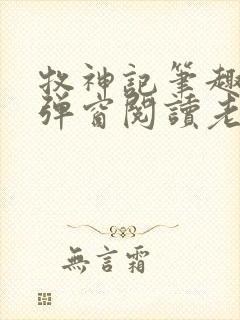 牧神記筆趣
彈窗閱讀老
無言霜